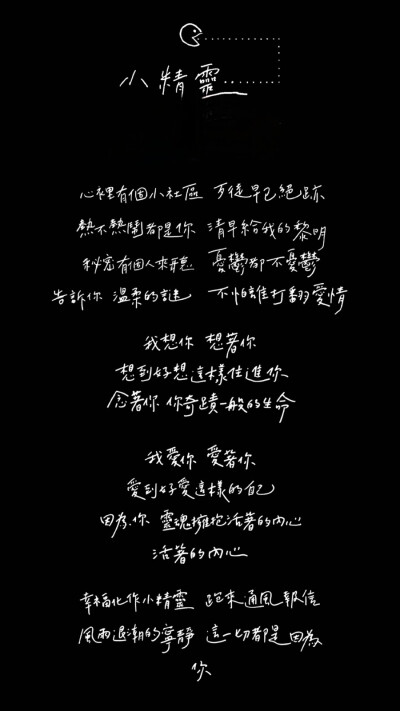 小精靈
心裡有個小社區 歹徒早已絕跡
熱不熱鬧都是你 清早給我的黎明
秘密有個人來聽 憂鬱都不憂鬱
告訴你 溫柔的謎 不怕誰打翻愛情
我想你 想著你
想到好想這樣住進你
念著你 你奇蹟一般的生命
我愛你 愛著你
愛到好愛這樣的自己
因為你 靈魂擁抱活著的內心
活著的內心
幸福化作小精靈 跑來通風報信
風雨退潮的寧靜 這一切都是因為
你